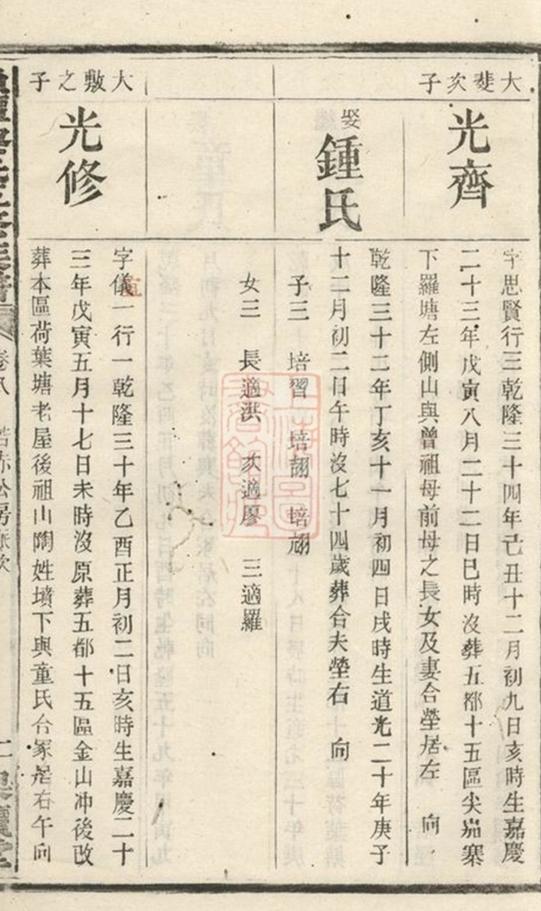 大斐次子
光齊
字思賢行三乾隆三十四年己丑十二月初九日亥時生嘉慶
二十三年戊寅八月二十二日巳時沒葬五都十五區尖崗寨
下羅塘左側山與曾祖母前母之長女及妻合塋居左 向
娶
鍾氏
乾隆三十二年丁亥十一月初四日戌時生道光二十年庚子
十二月初二日午時沒七十四歲葬合夫塋右 向
子三 培習 培翮 培翃
女三 長適洪 次適廖 三適羅
大敷之子
光修
字儀一行一乾隆三十年乙酉正月初二日亥時生嘉慶二十
三年戊寅五月十七日未時沒原葬五都十五區金山冲後改
葬本區荷葉塘老屋後祖山陶姓墳下與童氏合冢居右午向
卷八